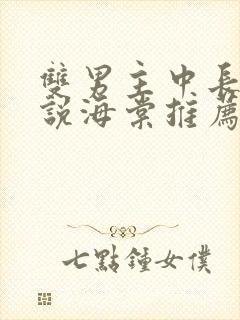 雙男主中長
說海棠推薦
七點鐘女僕